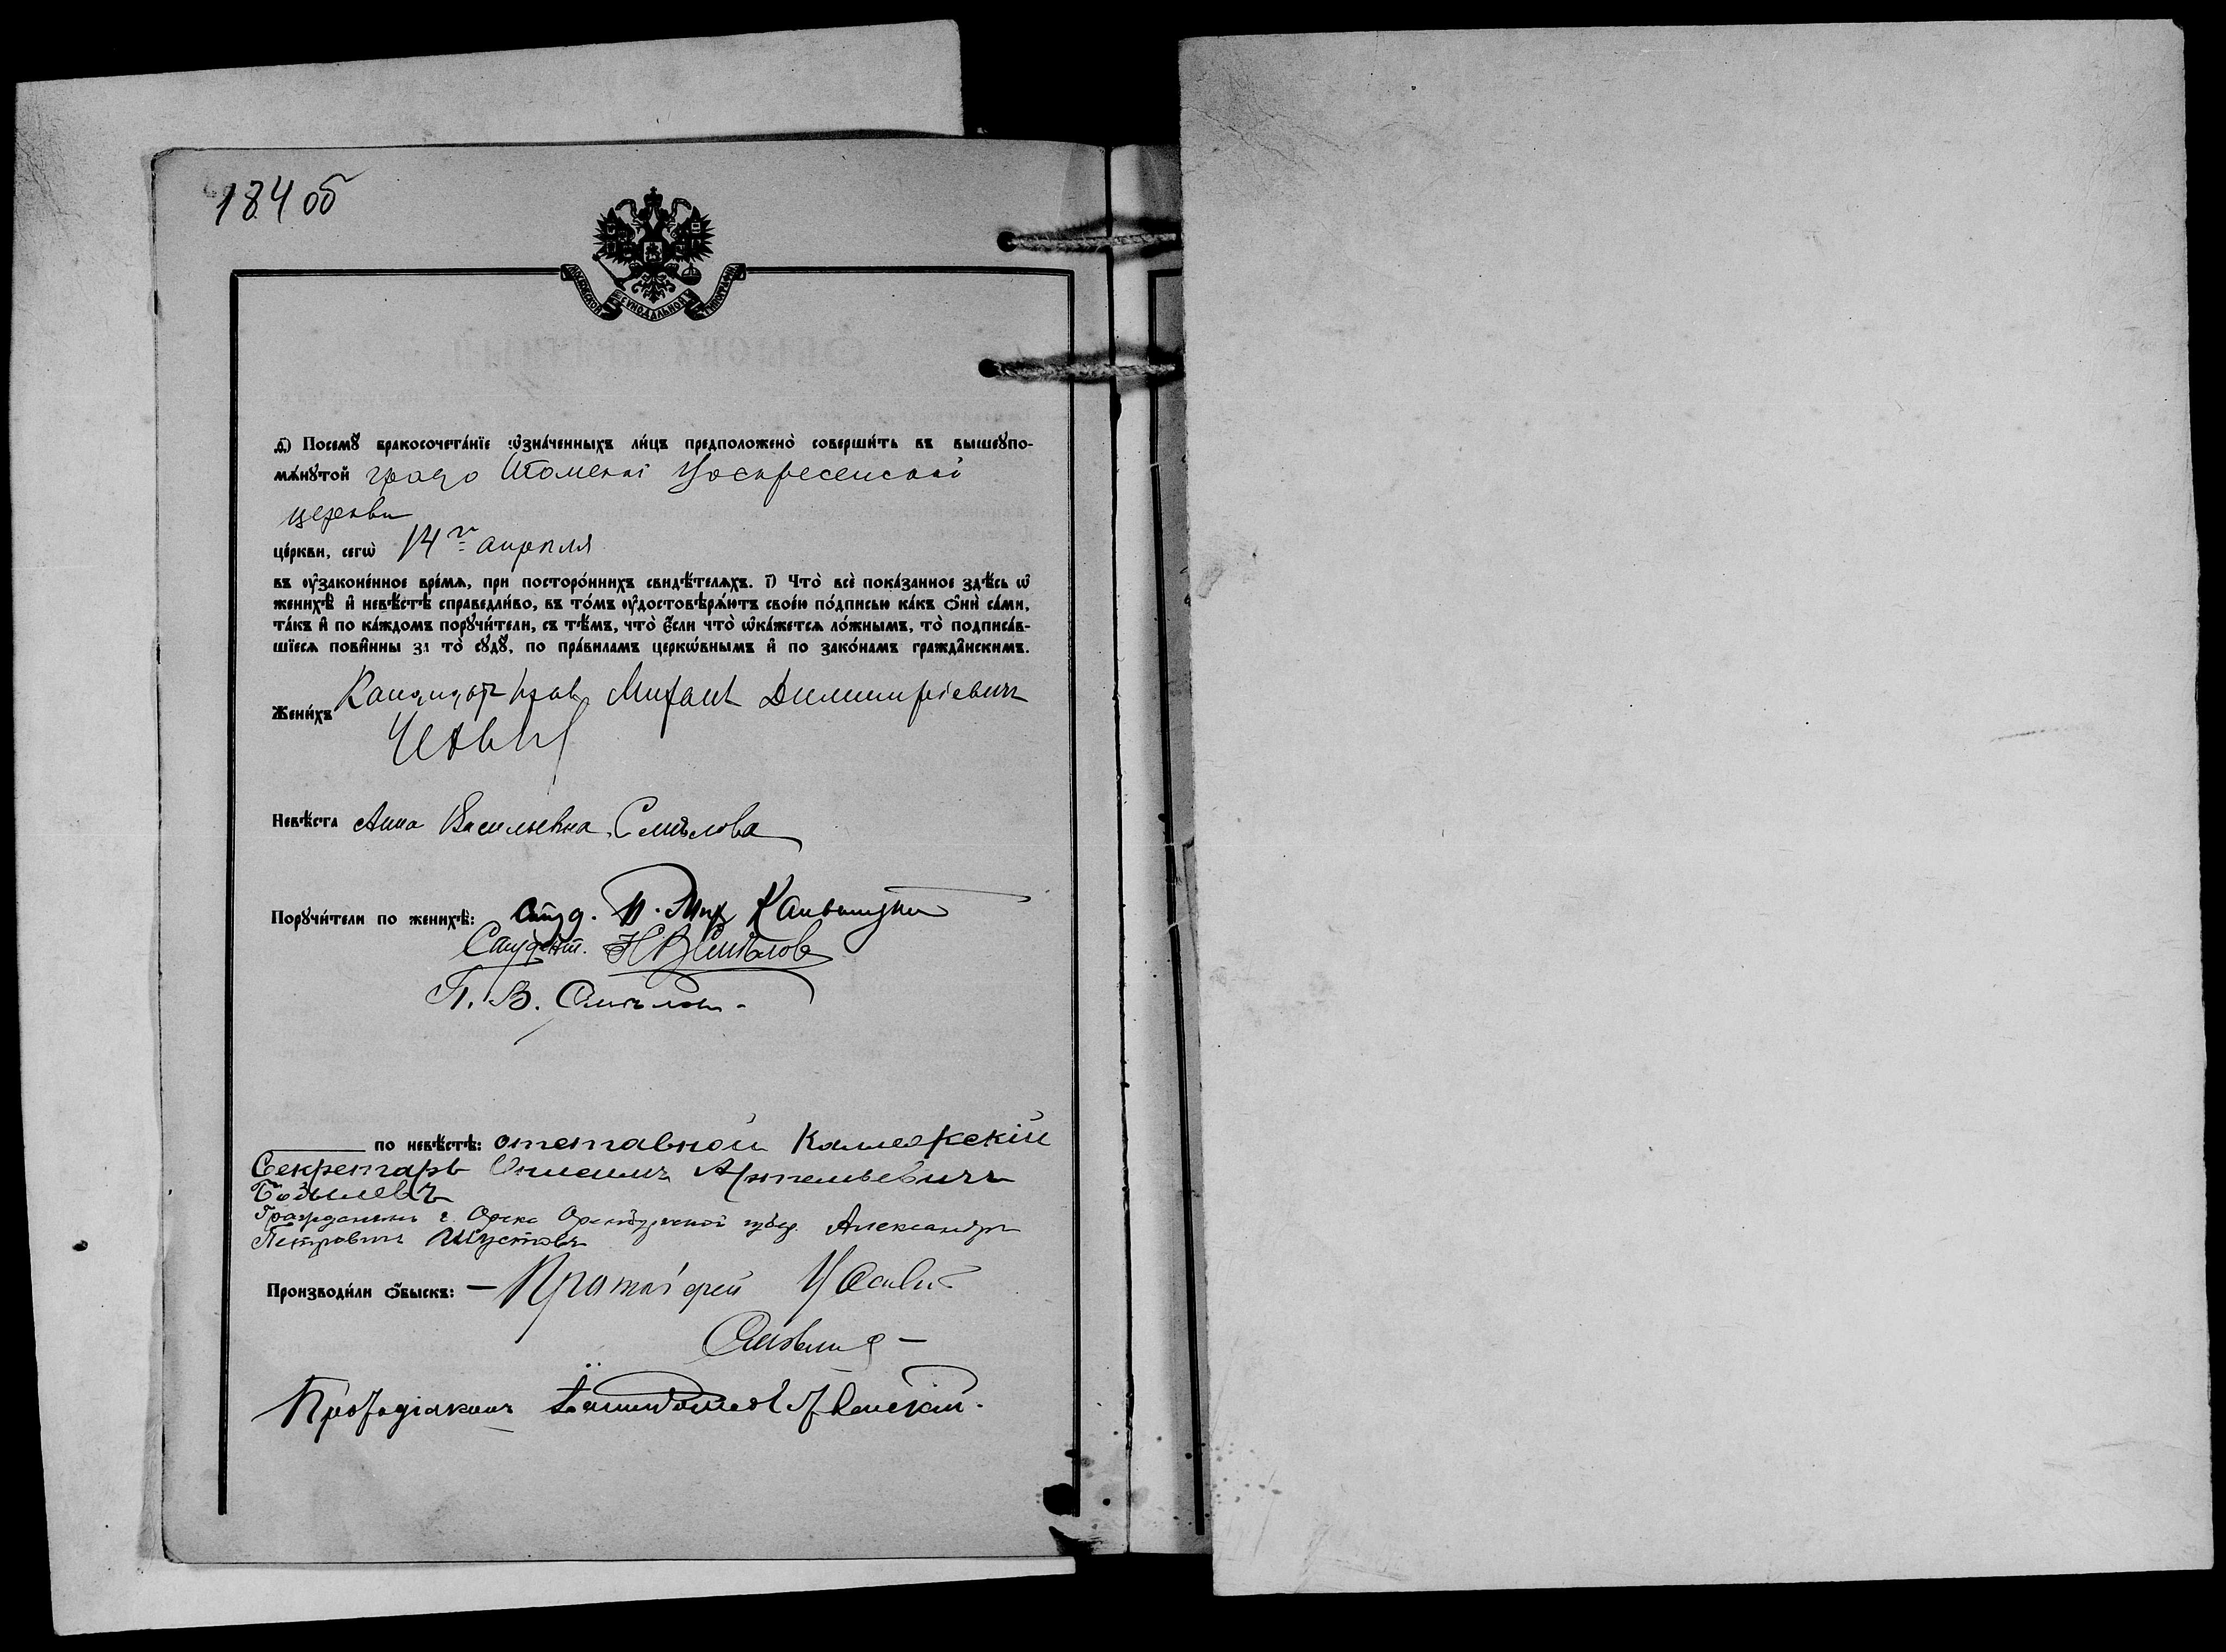 184 об
МОСКОВСКОЙ СѴНОДАЛЬНОЙ ТИПОГРАФІИ
д҃) Посемꙋ̀ бракосочета́нїе ѡ҆зна́ченныхъ ли́цъ предположено̀ соверши́ть въ вышеꙋпо-
мѧ́нꙋтой градо Воскресенскої
церкви
це́ркви, сегѡ̀ 14го апрѣля
въ ᲂу҆законе́нное вре́мѧ, при посторо́ннихъ свидѣ́телѧхъ. і҃) Что̀ всѐ пока́занное здѣ́сь ѡ҆
женихѣ̀ и҆ невѣ́стѣ справедли́во, въ то́мъ ᲂу҆достовѣрѧ́ютъ свое́ю по́дписью ка́къ ѻ҆нѝ са́ми,
та́къ и҆ по ка́ждомъ порꙋчи́тели, съ тѣ́мъ, что̀ є҆́сли что̀ ѡ҆ка́жетсѧ ло́жнымъ, то̀ подписа́в-
шїесѧ пови́нны за то̀ сꙋдꙋ̀, по пра́виламъ церкѡ́внымъ и҆ по зако́намъ гражда́нскимъ.
Жени́хъ Кандидатъ правъ Михаилъ Димитріевичъ
Невѣ́ста Анна Васильевна Смѣлова
Порꙋчи́тели по женихѣ̀: Студ.
Студент. Н В Смѣлов
П. В. Смѣлов.
по невѣ́стѣ: отставной Коллежскій
Секретарь Онисимъ Артемьевичъ
Бобылевъ
Гражданинъ г. Орска Оренбургской губер. Александръ
Петровичъ Шустовъ
Производи́ли ѻ҆́быскъ: – Протоіерей
Смѣлов –
Протодіаконъ